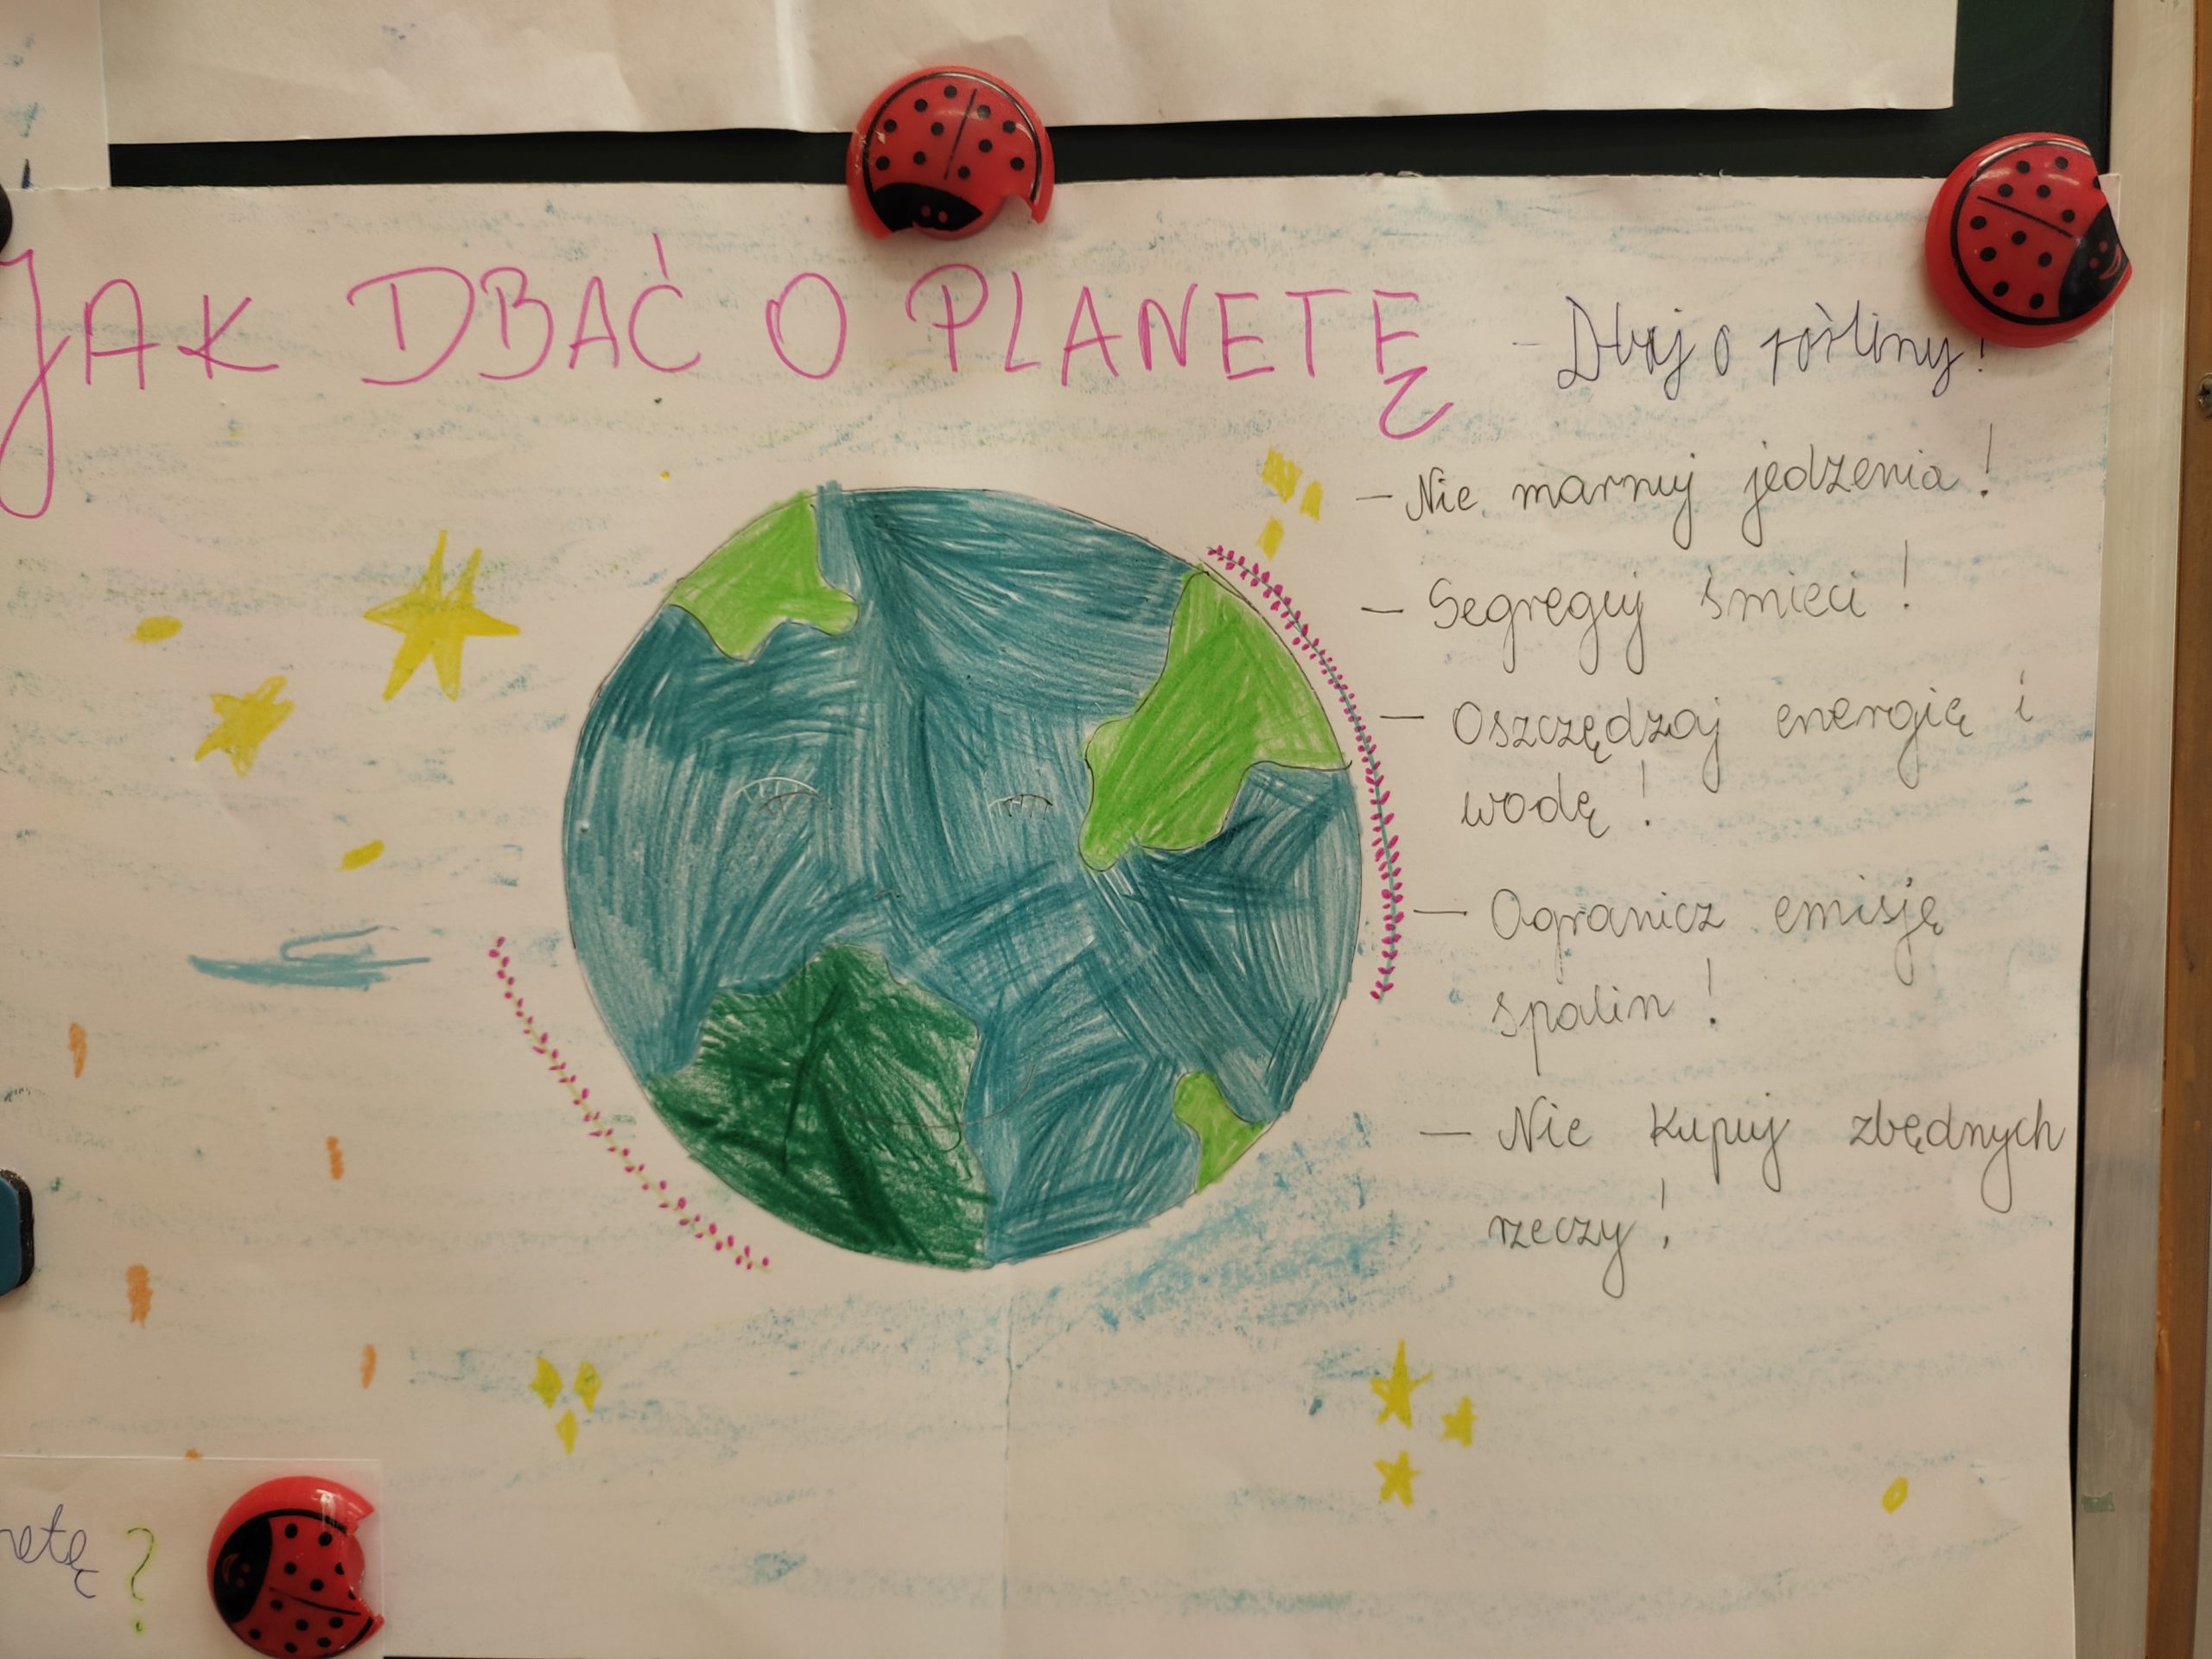 JAK DBAĆ O PLANETĘ
- Dbaj o rośliny!
- Nie marnuj jedzenia!
- Segreguj śmieci!
- Oszczędzaj energię i
wodę!
- Ogranicz emisję
spalin!
- Nie kupuj zbędnych
rzeczy!
netę?